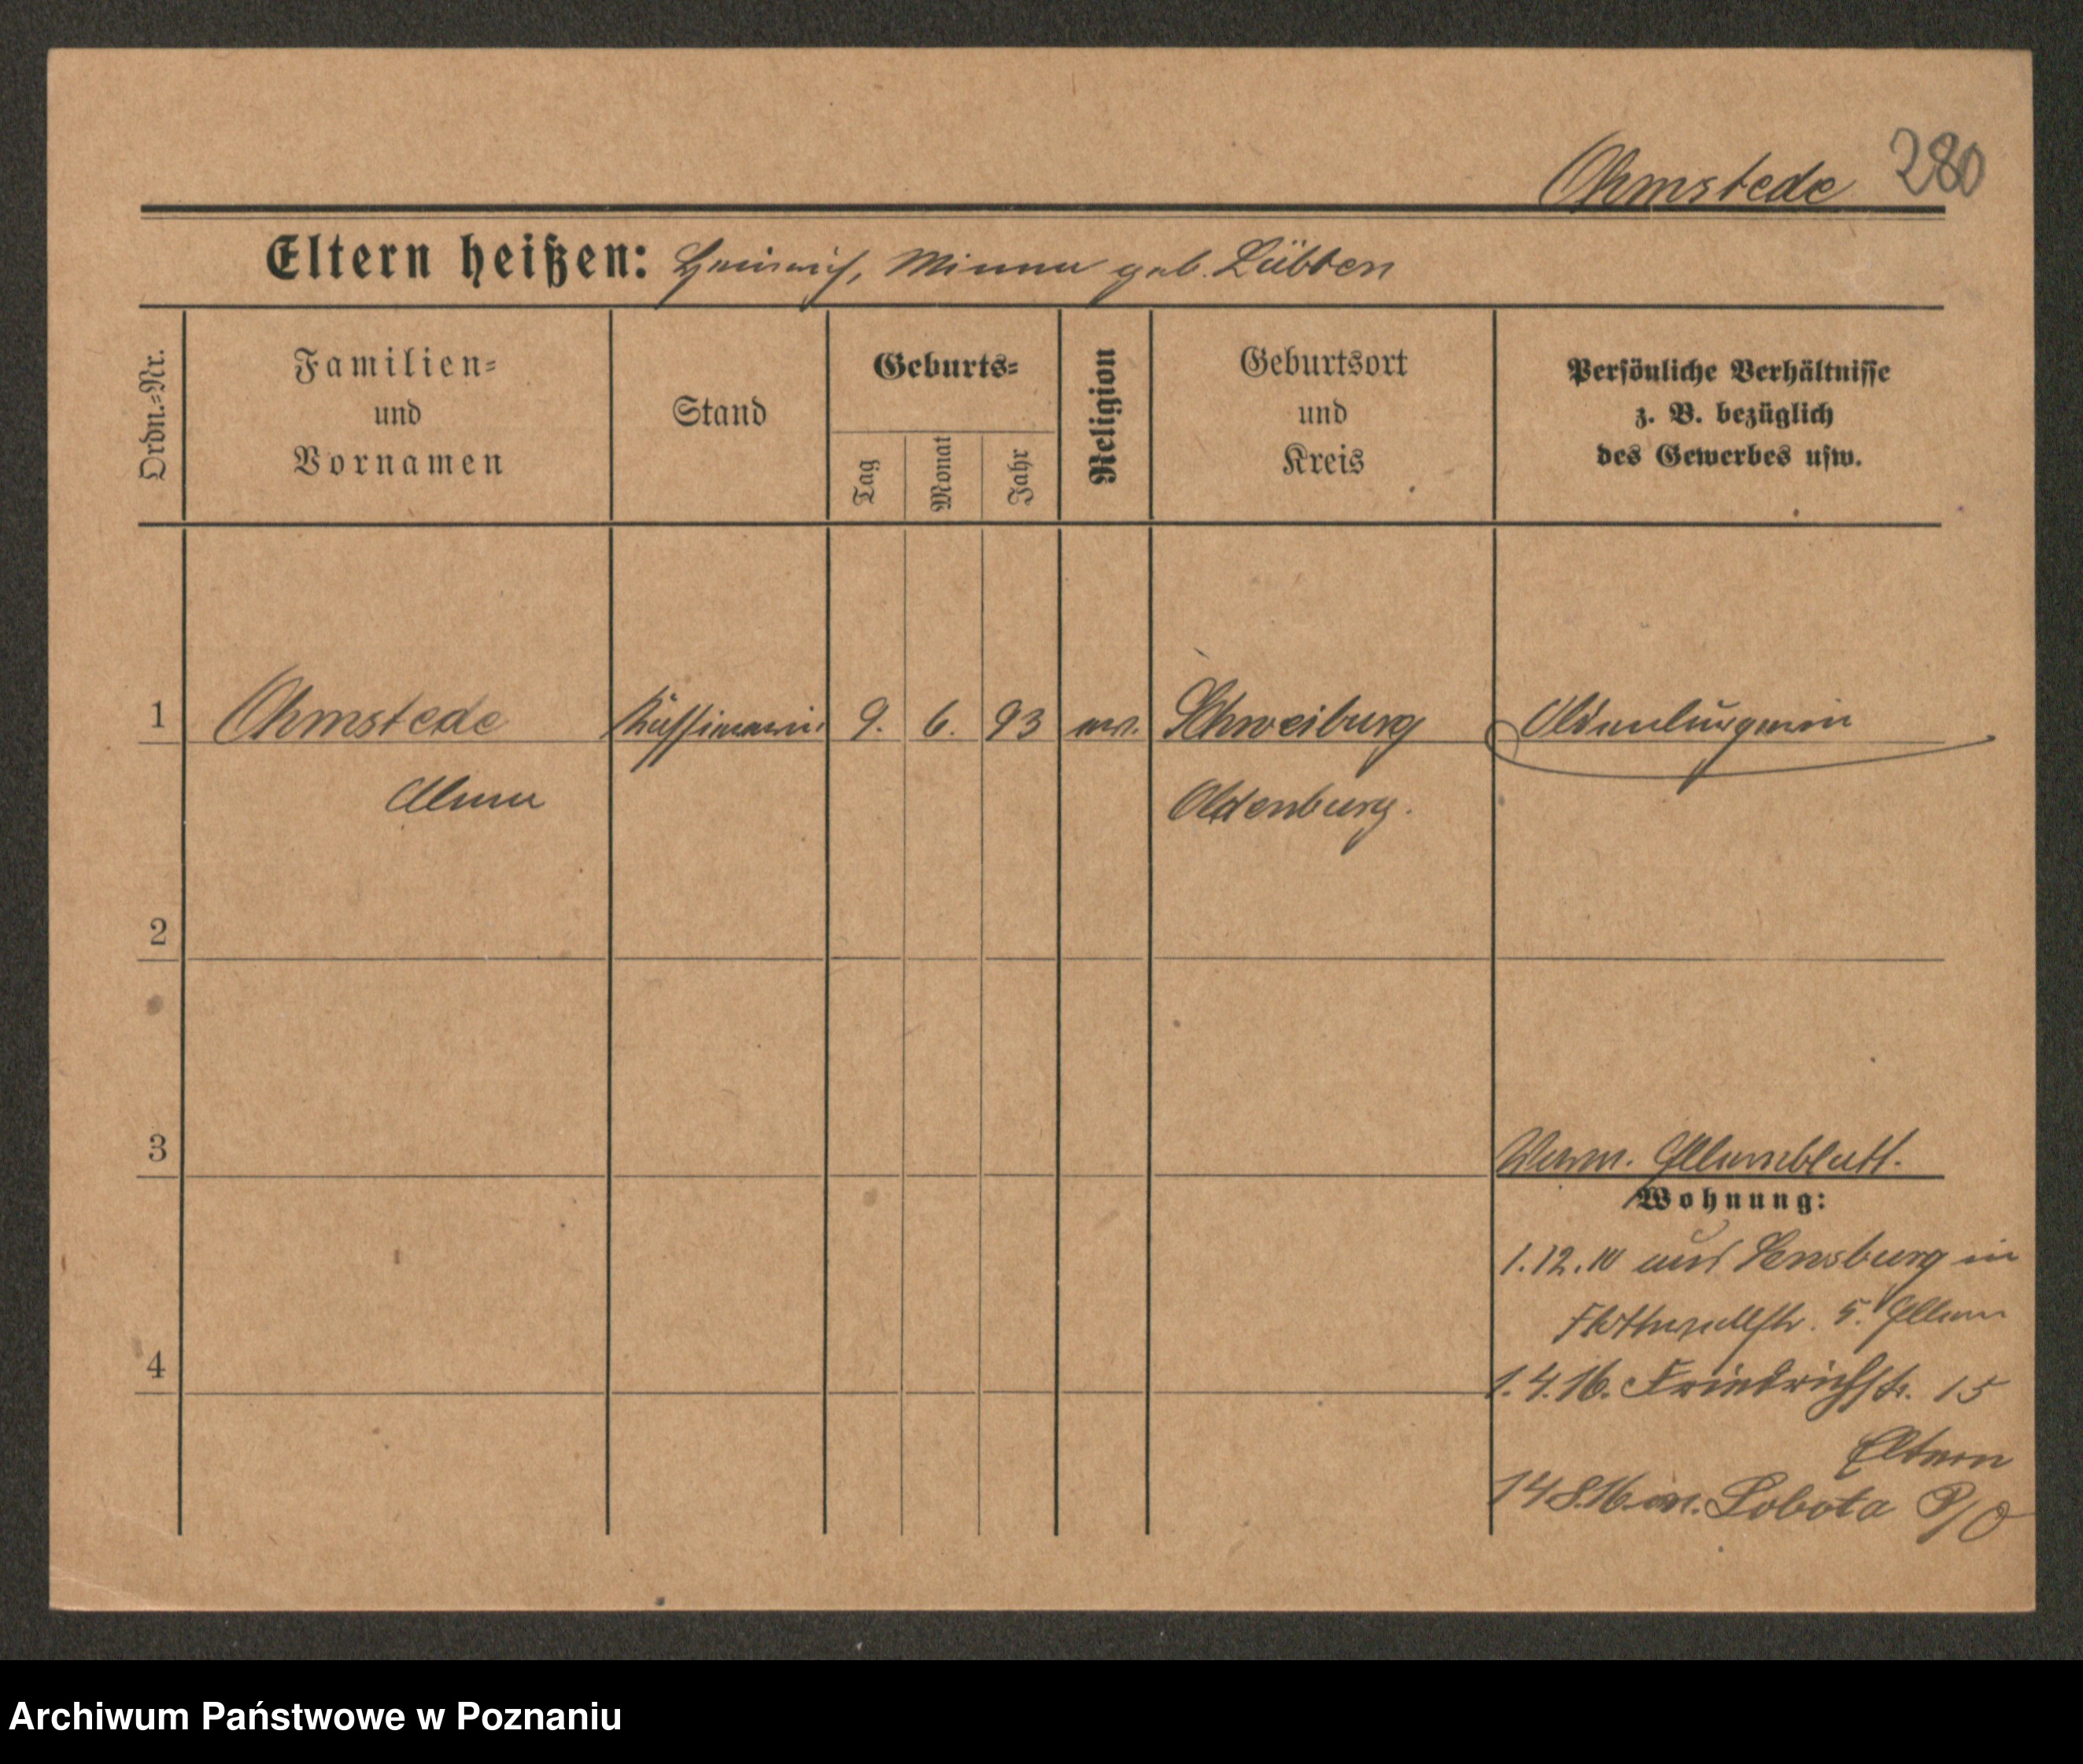 Ohmstede 280
Eltern heißen: Heinrich, Minna geb. Lübben
Ordn.=Nr.
Familien=
und
Vornamen
Stand
Geburts=
Tag
Monat
Jahr
Religion
Geburtsort
und
Kreis
Persönliche Verhältnisse
z. B. bezüglich
des Gewerbes usw.
1 Ohmstede 9. 6. 93 Schweiburg Oldenburgerin
Alma Oldenburg.
2
3
Verm. Elternblatt.
Wohnung:
1.12.10 aus Sensburg in
Flottwellstr. 5. Eltern
4
1.4.16. Friedrichstr. 15
Eltern
14.8.16. Sobota P/O
Archiwum Państwowe w Poznaniu